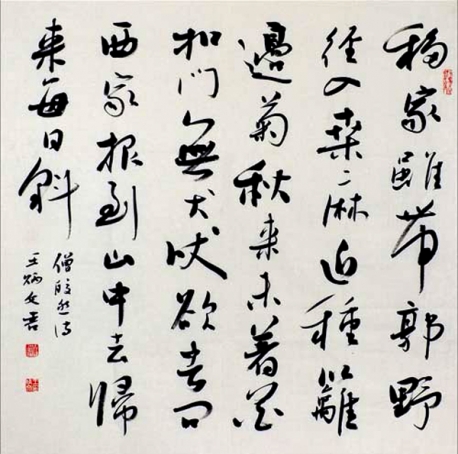 移家雖带郭野
径入桑麻近種籬
邊菊秋来未着花
扣門無犬吠欲去问
西家报到山中去歸
来每日斜
僧皎然诗
王炳文书